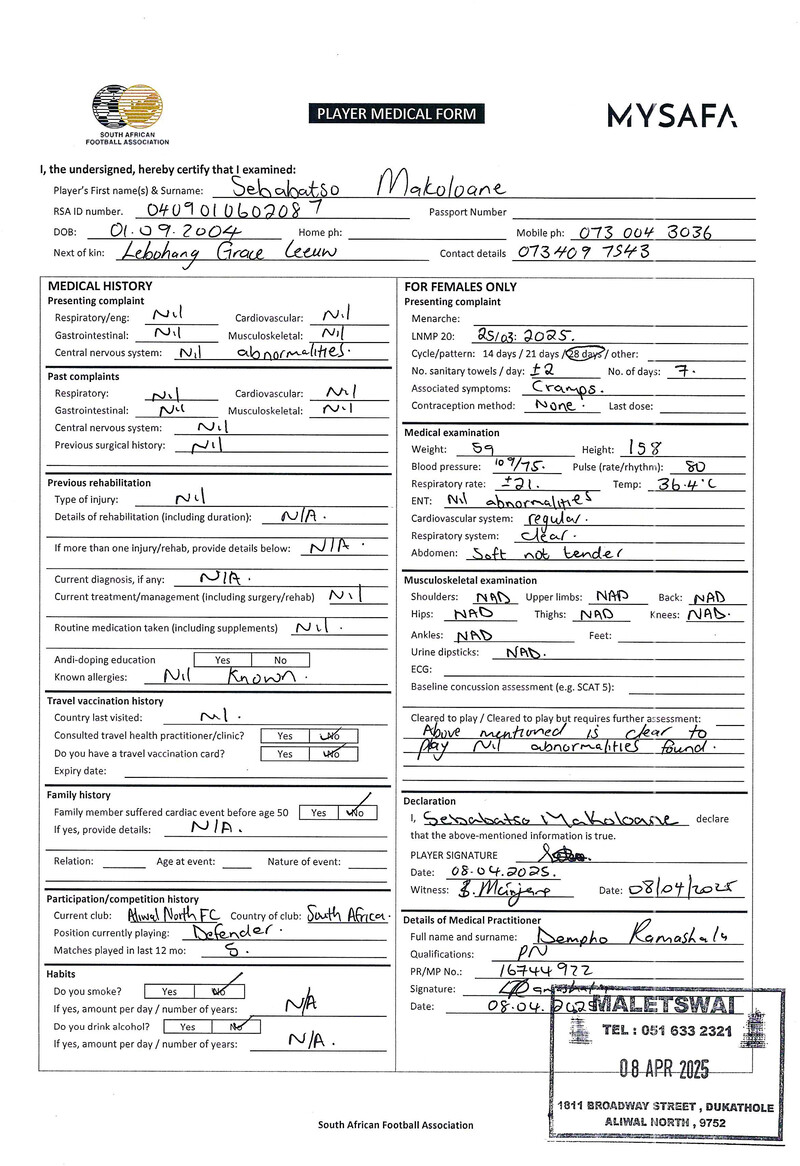 SOUTH AFRICAN
FOOTBALL ASSOCIATION
PLAYER MEDICAL FORM
MYSAFA
I, the undersigned, hereby certify that I examined:
Player's First name(s) & Surname: Sebabatso Makoloane
RSA ID number. 0409010602087 Passport Number
DOB: 01.09.2004 Home ph: Mobile ph: 073 004 3036
Next of kin: Lebohang Grace Leeuw Contact details 073 409 7543
MEDICAL HISTORY
Presenting complaint
Respiratory/eng: Nil Cardiovascular: Nil
Gastrointestinal: Nil Musculoskeletal: Nil
Central nervous system: Nil abnormalities.
Past complaints
Respiratory: Nil Cardiovascular: Nil
Gastrointestinal: Nil Musculoskeletal: Nil
Central nervous system: Nil
Previous surgical history: Nil
Previous rehabilitation
Type of injury: Nil
Details of rehabilitation (including duration): N/A.
If more than one injury/rehab, provide details below: N/A.
Current diagnosis, if any: N/A.
Current treatment/management (including surgery/rehab) Nil
Routine medication taken (including supplements) Nil.
Andi-doping education Yes No
Known allergies: Nil Known.
Travel vaccination history
Country last visited: Nil.
Consulted travel health practitioner/clinic? Yes No
Do you have a travel vaccination card? Yes No
Expiry date:
Family history
Family member suffered cardiac event before age 50 Yes No
If yes, provide details: N/A.
Relation: Age at event: Nature of event:
Participation/competition history
Current club: Aliwal North FC Country of club: South Africa.
Position currently playing: Defender.
Matches played in last 12 mo: 5.
Habits
Do you smoke? Yes No
If yes, amount per day / number of years: N/A
Do you drink alcohol? Yes No
If yes, amount per day / number of years: N/A.
FOR FEMALES ONLY
Presenting complaint
Menarche:
LNMP 20: 25/03.2025.
Cycle/pattern: 14 days / 21 days / 28 days / other:
No. sanitary towels / day: ±2 No. of days: 7.
Associated symptoms: Cramps.
Contraception method: None. Last dose:
Medical examination
Weight: 59 Height: 158
Blood pressure: 109/75. Pulse (rate/rhythm): 80
Respiratory rate: ±21. Temp: 36.4°C
ENT: Nil abnormalities
Cardiovascular system: regular.
Respiratory system: clear.
Abdomen: Soft not tender
Musculoskeletal examination
Shoulders: NAD Upper limbs: NAD Back: NAD
Hips: NAD Thighs: NAD Knees: NAD.
Ankles: NAD Feet:
Urine dipsticks: NAD.
ECG:
Baseline concussion assessment (e.g. SCAT 5):
Cleared to play / Cleared to play but requires further assessment:
Above mentioned is clear to
play Nil abnormalities found.
Declaration
I, Sebabatso Makoloane declare
that the above-mentioned information is true.
PLAYER SIGNATURE
Date: 08.04.2025.
Witness: Date: 08/04/2025
Details of Medical Practitioner
Full name and surname: Dempho Ramashala
Qualifications: PN
PR/MP No.: 16744922
Signature:
Date: 08.04.2025
MALETSWAI
TEL : 051 633 2321
08 APR 2025
1811 BROADWAY STREET , DUKATHOLE
ALIWAL NORTH , 9752
South African Football Association